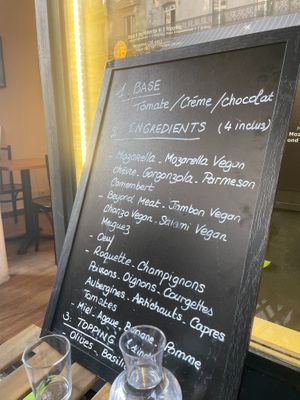 1. BASE
Tomate/Crème/chocolat
2. INGREDIENTS (4 inclus)
- Mozarella - Mozarella Vegan
Chèvre - Gorgonzola - Parmeson
Camembert
- Beyond Meat - Jambon Vegan
Chorizo Vegan - Salami Vegan
Merguez
- Oeuf
- Roquette - Champignons
Poivrons - Oignons - Courgettes
Aubergines - Artichauts - Capres
Tomates
- Miel - Agave - Banane - Pomme
3. TOPPING
- Olives - Basilic